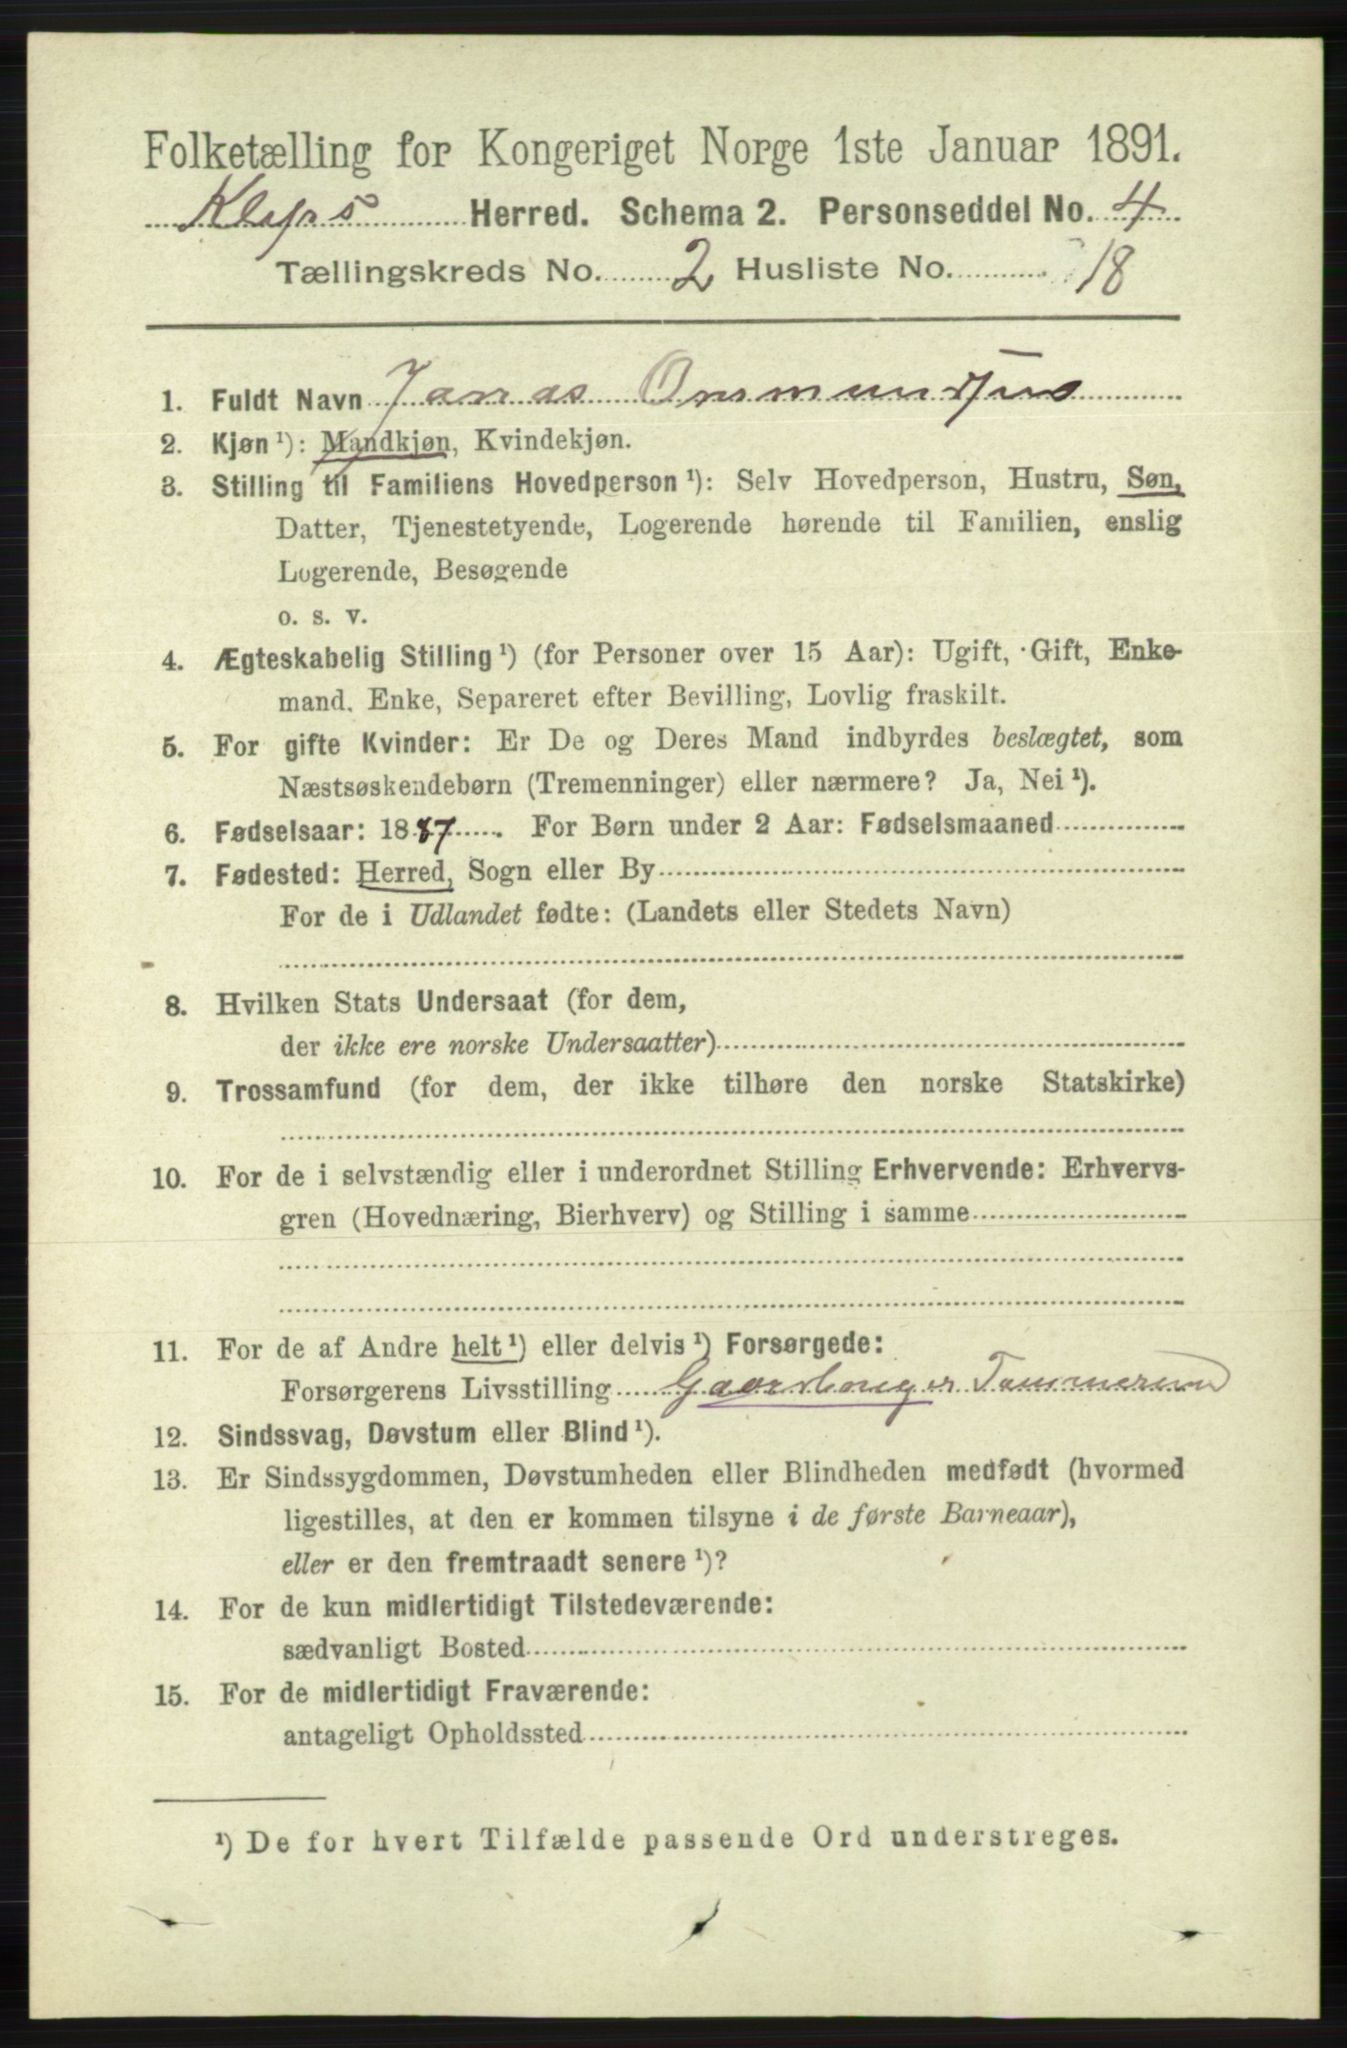 Folketælling for Kongeriget Norge 1ste Januar 1891.
Kleps Herred. Schema 2. Personseddel No. 4
Tællingskreds No. 2 Husliste No. 18
1. Fuldt Navn Jonas Ommundsen
2. Kjøn ¹): Mandkjøn, Kvindekjøn.
3. Stilling til Familiens Hovedperson ¹): Selv Hovedperson, Hustru, Søn,
Datter, Tjenestetyende, Logerende hørende til Familien, enslig
Logerende, Besøgende
o. s. v.
4. Ægteskabelig Stilling ¹) (for Personer over 15 Aar): Ugift, Gift, Enke-
mand, Enke, Separeret efter Bevilling, Lovlig fraskilt.
5. For gifte Kvinder: Er De og Deres Mand indbyrdes beslægtet, som
Næstsøskendebørn (Tremenninger) eller nærmere? Ja, Nei ¹).
6. Fødselsaar: 1887. For Børn under 2 Aar: Fødselsmaaned
7. Fødested: Herred, Sogn eller By
For de i Udlandet fødte: (Landets eller Stedets Navn)
8. Hvilken Stats Undersaat (for dem,
der ikke ere norske Undersaatter)
9. Trossamfund (for dem, der ikke tilhøre den norske Statskirke)
10. For de i selvstændig eller i underordnet Stilling Erhvervende: Erhvervs-
gren (Hovednæring, Bierhverv) og Stilling i samme
11. For de af Andre helt ¹) eller delvis ¹) Forsørgede:
Forsørgerens Livsstilling Gaardbruger
12. Sindssvag, Døvstum eller Blind ¹).
13. Er Sindssygdommen, Døvstumheden eller Blindheden medfødt (hvormed
ligestilles, at den er kommen tilsyne i de første Barneaar),
eller er den fremtraadt senere ¹)?
14. For de kun midlertidigt Tilstedeværende:
sædvanligt Bosted
15. For de midlertidigt Fraværende:
antageligt Opholdssted
¹) De for hvert Tilfælde passende Ord understreges.